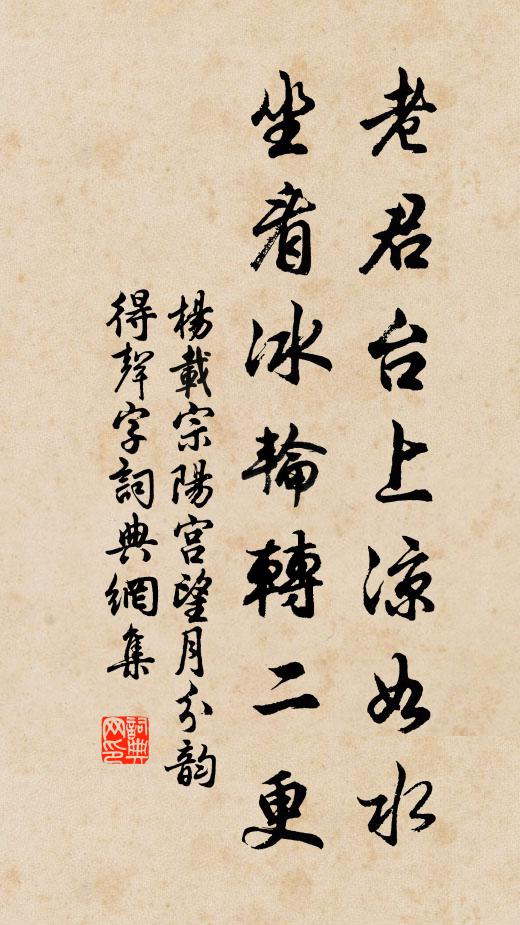 老君台上凉如水
坐看冰輪轉二更
楊載宗陽宮望月分韵
得聲字詞典網集
詞典網印